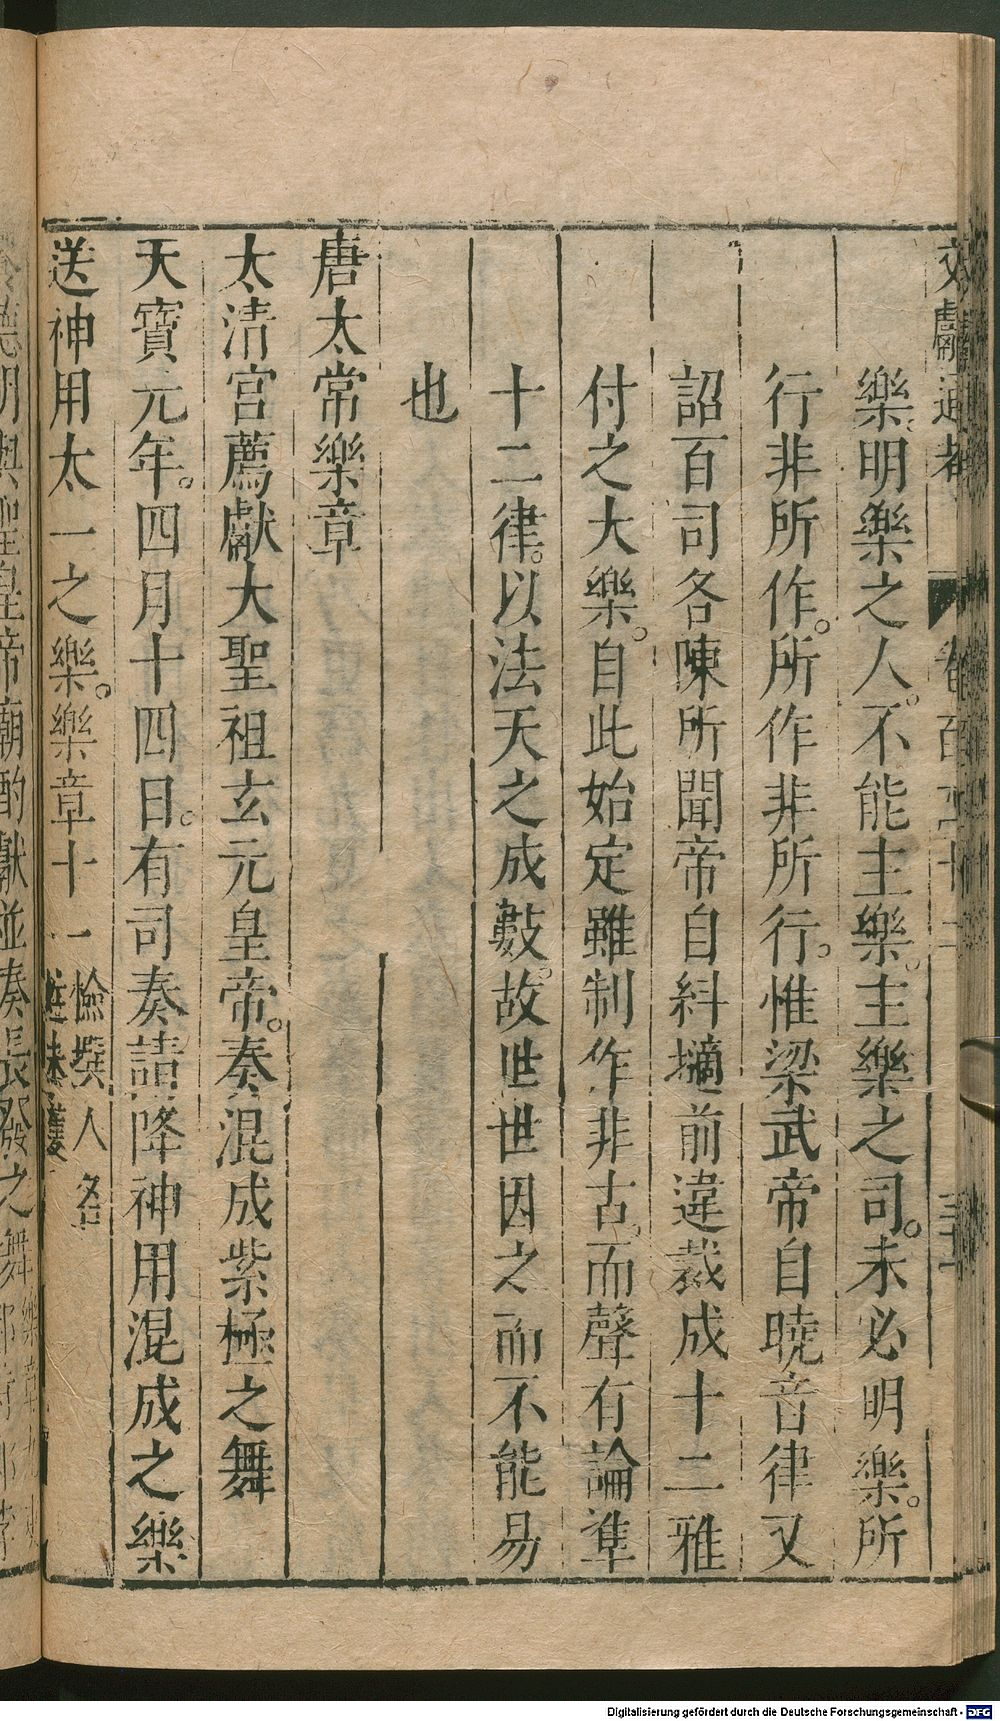 文獻通考 卷百四十二 三十
樂。明樂之人。不能主樂。主樂之司。未必明樂。所
行非所作。所作非所行。惟梁武帝自曉音律又
詔百司各陳所聞帝自糾擿前違裁成十二雅
付之大樂。自此始定雖制作非古。而聲有論準
十二律。以法天之成數。故世世因之而不能易
也
唐太常樂章
太清宮薦獻大聖祖玄元皇帝。奏混成紫極之舞
天寶元年。四月十四日。有司奏請降神用混成之樂
送神用太一之樂。樂章十一檢撰人名
並未獲
德明興聖皇帝廟酌獻並奏長發之舞樂章九